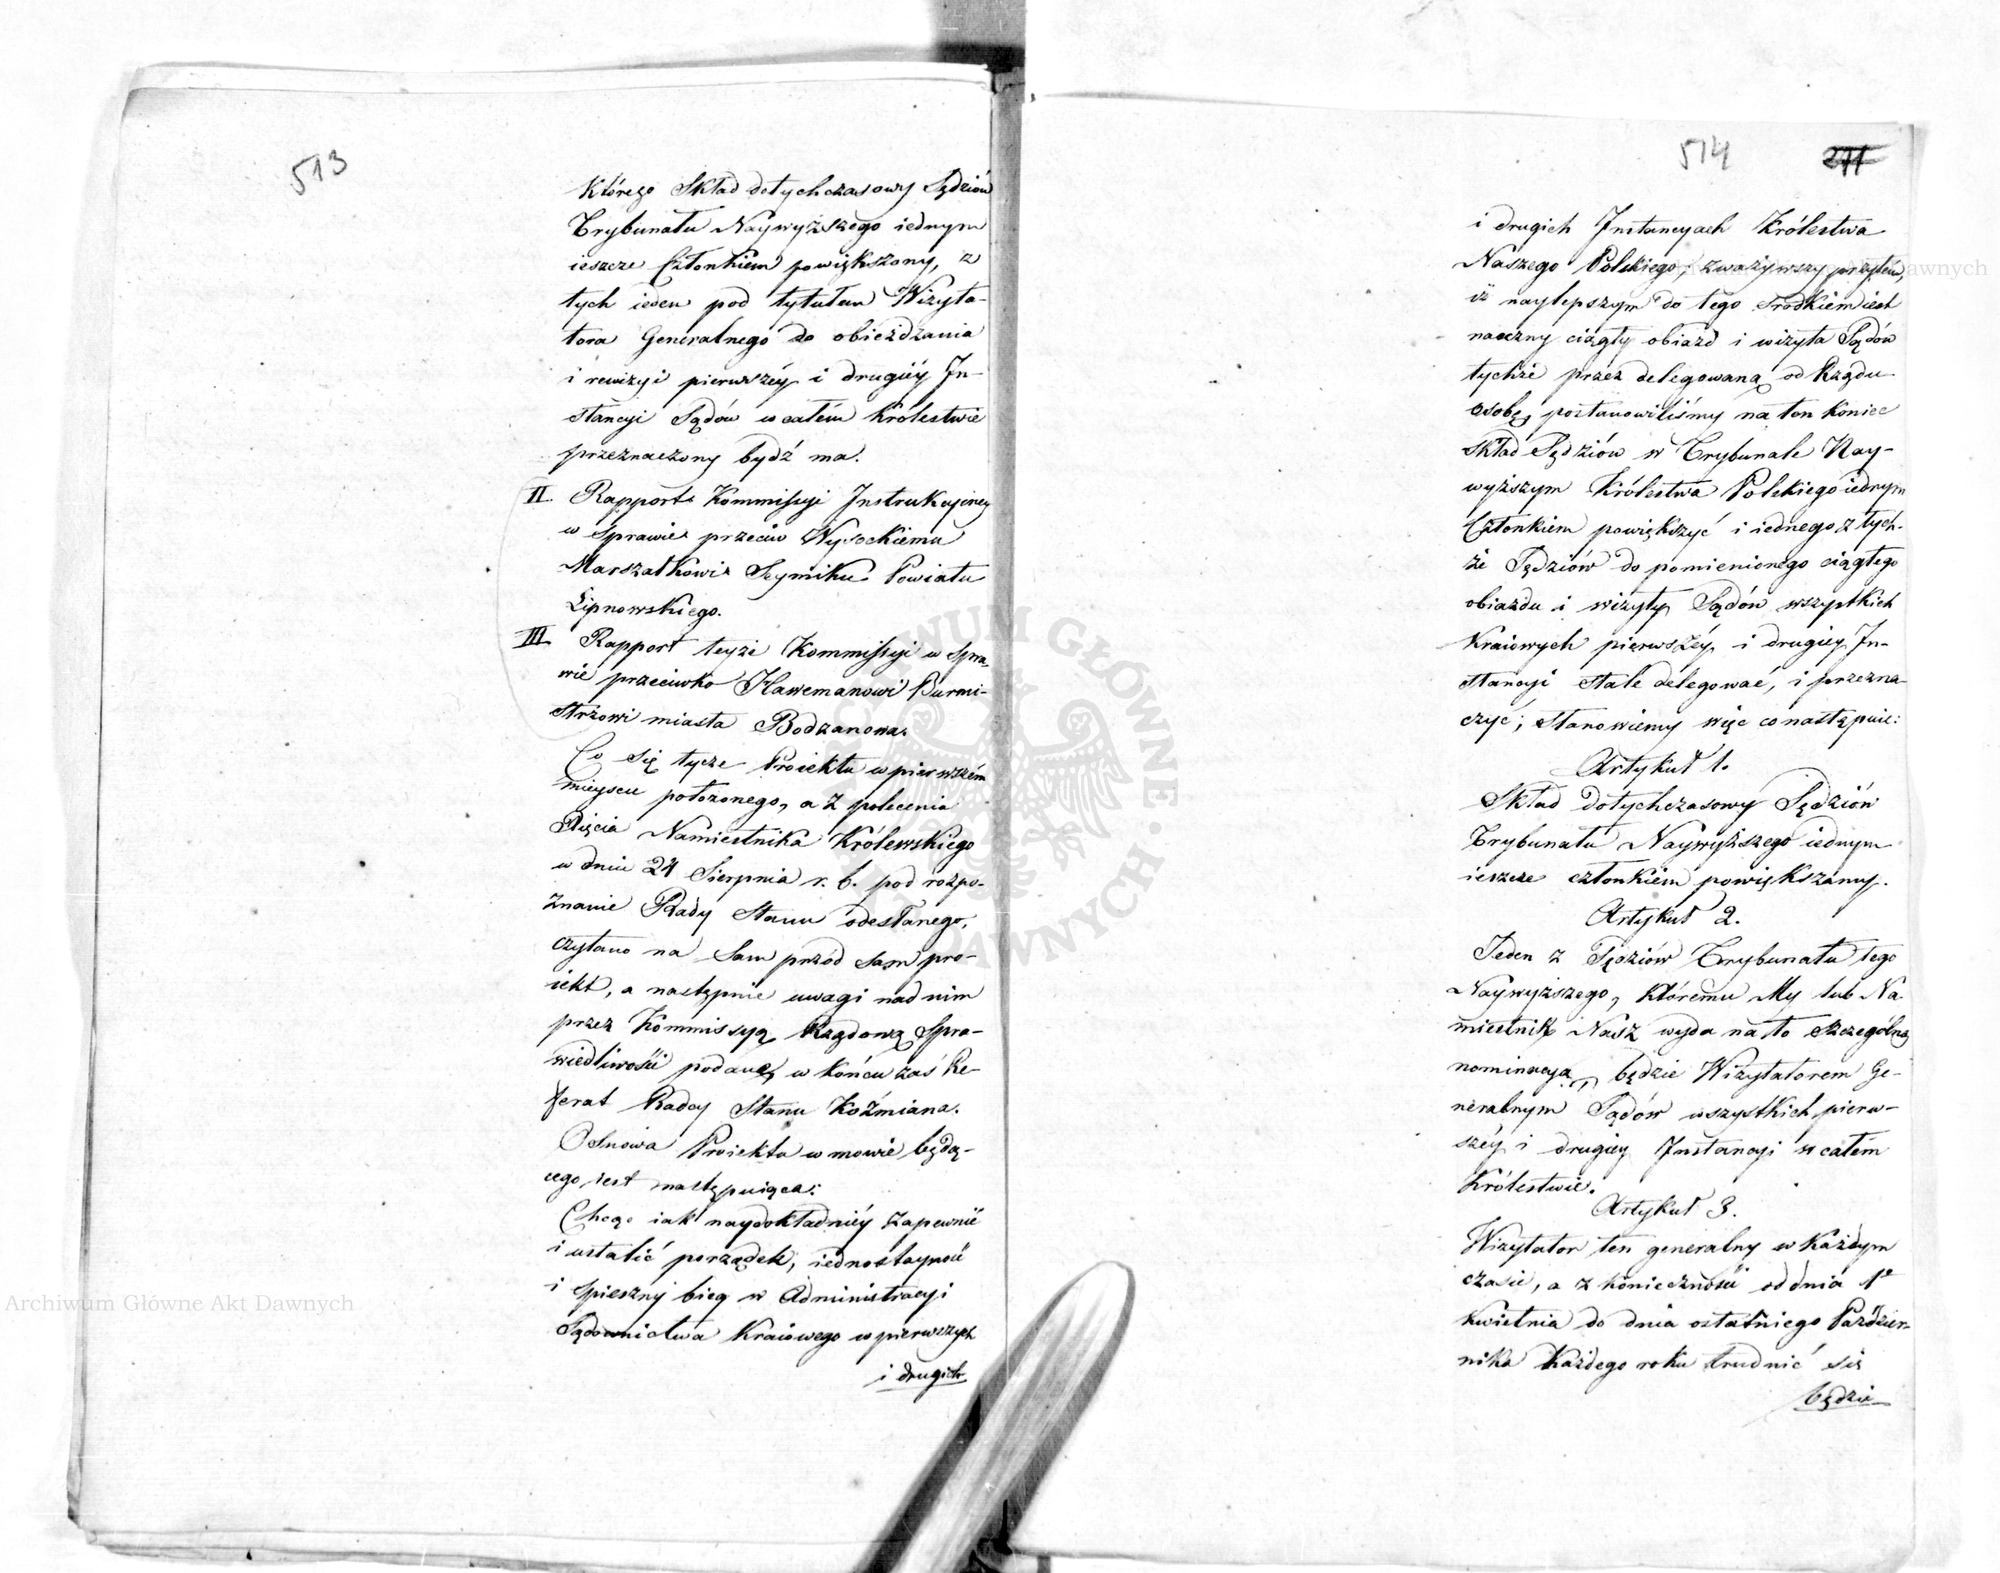 513
którego Skład dotychczasowy Sędziów
Trybunału Naywyższego iednym
ieszcze Członkiem powiększony, z
tych ieden pod tytułem Wizyta-
tora Generalnego do obieżdżania
i rewizyi pierwszéy i drugiéy In-
stancyi Sądów w całém Królestwie
przeznaczony bydź ma.
II. Rapport Kommissyi Instrukcyiney
w sprawie przeciw Wysockiemu
Marszałkowi Seymiku Powiatu
Lipnowskiego.
III. Rapport teyże Kommissyi w spra-
wie przeciwko Hawemanowi Burmi-
strzowi miasta Bodzanowa.
Co się tycze Proiektu w pierwszém
mieyscu położonego, a z polecenia
Xięcia Namiestnika Królewskiego
w dniu 24 Sierpnia r. b. pod rozpo-
znanie Rady Stanu odesłanego,
czytano na sam przód sam pro-
iekt, a następnie uwagi nad nim
przez Kommissyą Rządową Spra-
wiedliwości podane, w końcu zaś Re-
ferat Radcy Stanu Koźmiana.
Osnowa Proiektu w mowie będą-
cego iest następuiąca:
Chcąc iak naydokładniéy zapewnić
i ustalić porządek, iednostayność
i spieszny bieg w Administracyi
Sądownictwa Kraiowego w pierwszych
i drugich
514
271
i drugich Instancyach Królestwa
Naszego Polskiego, zważywszy przytém,
iż naylepszym do tego środkiem iest
naoczny ciągły obiazd i wizyta Sądów
tychże przez delegowaną od Rządu
osobę, postanowiliśmy na ten koniec
skład Sędziów w Trybunale Nay-
wyższym Królestwa Polskiego iednym
Członkiem powiększyć i iednego z tych-
że Sędziów do pomienionego ciągłego
obiazdu i wizyty Sądów wszystkich
Kraiowych pierwszéy i drugiey In-
stancyi stale delegować, i przezna-
czyć; stanowiemy więc co następuie:
Artykuł 1.
Skład dotychczasowy Sędziów
Trybunału Naywyższego iednym
ieszcze członkiem powiększamy.
Artykuł 2.
Jeden z Sędziów Trybunału tego
Naywyższego, któremu My lub Na-
miestnik Nasz wyda na to szczególną
nominacyą, będzie Wizytatorem Ge-
neralnym Sądów wszystkich pierw-
széy i drugiey Instancyi w całém
Królestwie.
Artykuł 3.
Wizytator ten generalny w każdym
czasie, a z konieczności od dnia 1º
Kwietnia do dnia ostatniego Paździer-
nika każdego roku trudnić się
będzie
Archiwum Główne Akt Dawnych
ARCHIWUM GŁÓWNE AKT DAWNYCH